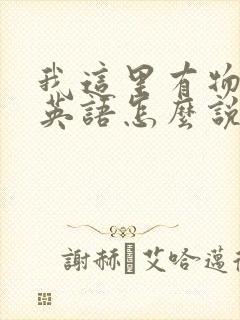 我這里有物
英語怎麼說
謝赫 艾哈邁